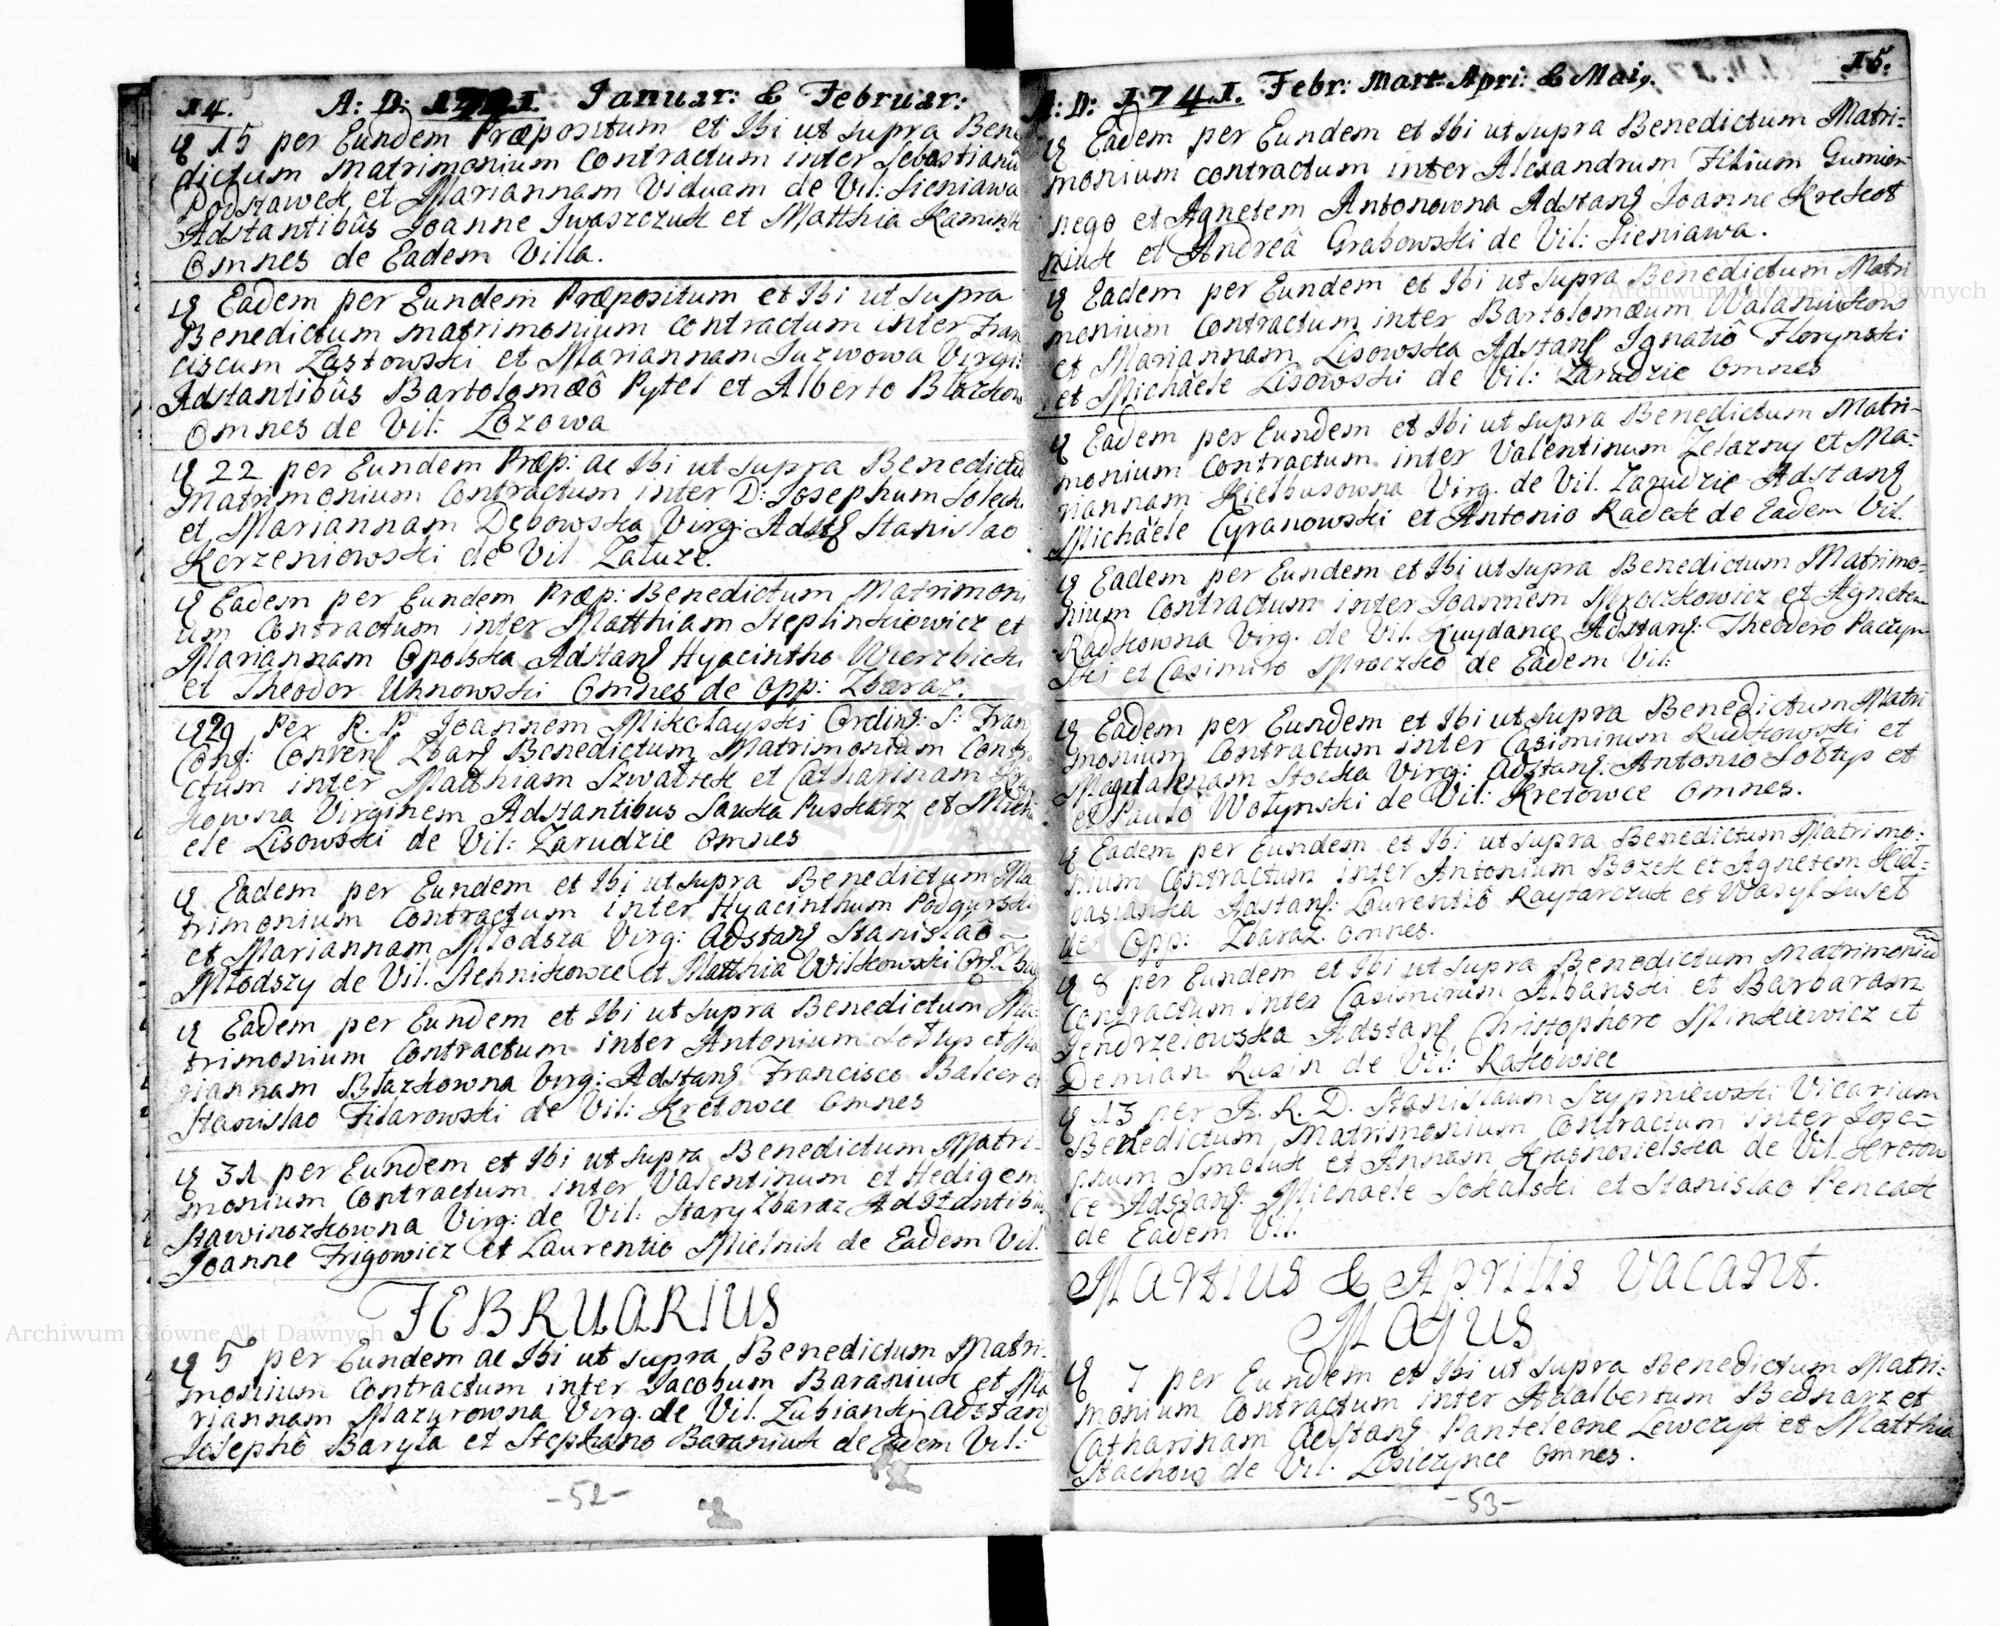 14. A: D: 1741. Januar: & Februar:
15 per Eundem Præpositum et Ibi ut supra Bene
dictum Matrimonium Contractum inter Sebastianu
Podstawek et Mariannam Viduam de Vil: Sieniawa
Adstantibûs Joanne Iwaszczuk et Matthia Kamińsk
Omnes de Eadem Villa.
Eadem per Eundem Præpositum et Ibi ut supra
Benedictum matrimonium contractum inter Fran
ciscum Zastowski et Mariannam Juzwowa Virgi:
Adstantibûs Bartolomæô Pytel et Alberto Błazkow
Omnes de Vil: Łozowa
22 per Eundem Præp: ac Ibi ut supra Benedictu
Matrimonium Contractum inter D: Josephum Solecki
et Mariannam Dębowska Virg: Adst Stanislao
Korzeniowski de Vil Załuże.
Eadem per Eundem Præp: Benedictum Matrimoni
um Contractum inter Matthiam Steplinkiewicz et
Mariannam Opolska Adstan Hyacintho Wierzbicki
et Theodor Uhnowski Omnes de Opp: Zbaraz.
29 Per R. P. Joannem Mikołayski Ordin: S: Fran
Con: Conven Zbar Benedictum Matrimonium Contr
ctum inter Matthiam Szwałek et Catharinam
kowna Virginem Adstantibus Sauka Puskarz et Mich
ele Lisowski de Vil: Zarudzie Omnes
Eadem per Eundem et Ibi ut supra Benedictum Ma
trimonium Contractum inter Hyacinthum Podgurski
et Mariannam Młodsza Virg: Adstan Stanislaô
Młodszy de Vil. Stehnikowce et Matthia Wilkowski
Eadem per Eundem et Ibi ut supra Benedictum Ma:
trimonium Contractum inter Antonium Sołtys et Ma
riannam Błazkowna Virg: Adstan Francisco Balcer et
Stanislao Filarowski de Vil: Kretowce Omnes
31 per Eundem et Ibi ut supra Benedictum Matri-
monium Contractum inter Valentinum et Hedigem
Stawinozkowna Virg: de Vil: Stary Zbaraz Adstantibu
Joanne Frigowicz et Laurentio Mielnik de Eadem Vil.
FEBRUARIUS
5 per Eundem ac Ibi ut supra Benedictum Matri:
monium Contractum inter Jacobum Baraniuk et Ma
riannam Mazurowna Virg. de Vil. Łubianki Adstan
Josephô Baryła et Stephano Baraniuk de Eadem Vil:
-52-
A: D: 1741. Febr: Mart: Apri: & Maiy. 15.
Eadem per Eundem et Ibi ut supra Benedictum Matri:
monium contractum inter Alexandrum Filium Gumien
nego et Agnetem Antonowna Adstan Joanne Krekot
niuk et Andreâ Grabowski de Vil: Sieniawa.
Eadem per Eundem et Ibi ut supra Benedictum Matri
monium Contractum inter Bartolomæum
et Mariannam Lisowska Adstan Ignatiô Florynski
et Michaele Lisowski de Vil: Zarudzie Omnes
Eadem per Eundem et Ibi ut supra Benedictum Matri-
monium Contractum inter Valentinum Zelazny et Ma:
riannam Kiełbusowna Virg. de Vil. Zarudzie Adstan
Michaële Cyranowski et Antonio Radek de Eadem Vil.
Eadem per Eundem et Ibi ut supra Benedictum Matrimo-
nium Contractum inter Joannem Mroczkowicz et Agnetem
Radkowna Virg. de Vil. Kuydance Adstan: Theodero Paczyn
ski et Casimiro Mroczko de Eadem Vil:
Eadem per Eundem et Ibi ut supra Benedictum Matri
monium Contractum inter Casimirum Rudkowski et
Magdalenam Stocka Virg: Adstan: Antonio Sołtys et
et Paulo Wołynski de Vil: Kretowce Omnes.
Eadem per Eundem et Ibi ut supra Benedictum Matrimo:
nium Contractum inter Antonium Bozek et Agnetem Kieł-
basianka Adstan: Laurentiô Raytarczuk et Wasyl Suset
de Opp: Zbaraz. Omnes.
8 per Eundem et Ibi ut supra Benedictum Matrimoniu
Contractum inter Casimirum Albanski et Barbaram
Jendrzeiowska Adstan Christophoro Minkiewicz et
Demian Rusin de Vil: Rakowiec
13 per A. R. D. Stanislaum Szypniewski Vicarium
Benedictum Matrimonium Contractum inter Jose=
phum Smoluk et Annam Krasnosielska de Vil. Kretow
ce Adstan: Michaele Sokalski et Stanislao Pencak
de Eadem Vil.
Martius & Aprilis vacant.
Majus
7 per Eundem et Ibi ut supra Benedictum Matri:
monium Contractum inter Adalbertum Bednarz et
Catharinam Adstan Panteleone Lewczyk et Matthia
Stachow de Vil. Łosiczynce Omnes.
-53-
Archiwum Główne Akt Dawnych
Archiwum Główne Akt Dawnych